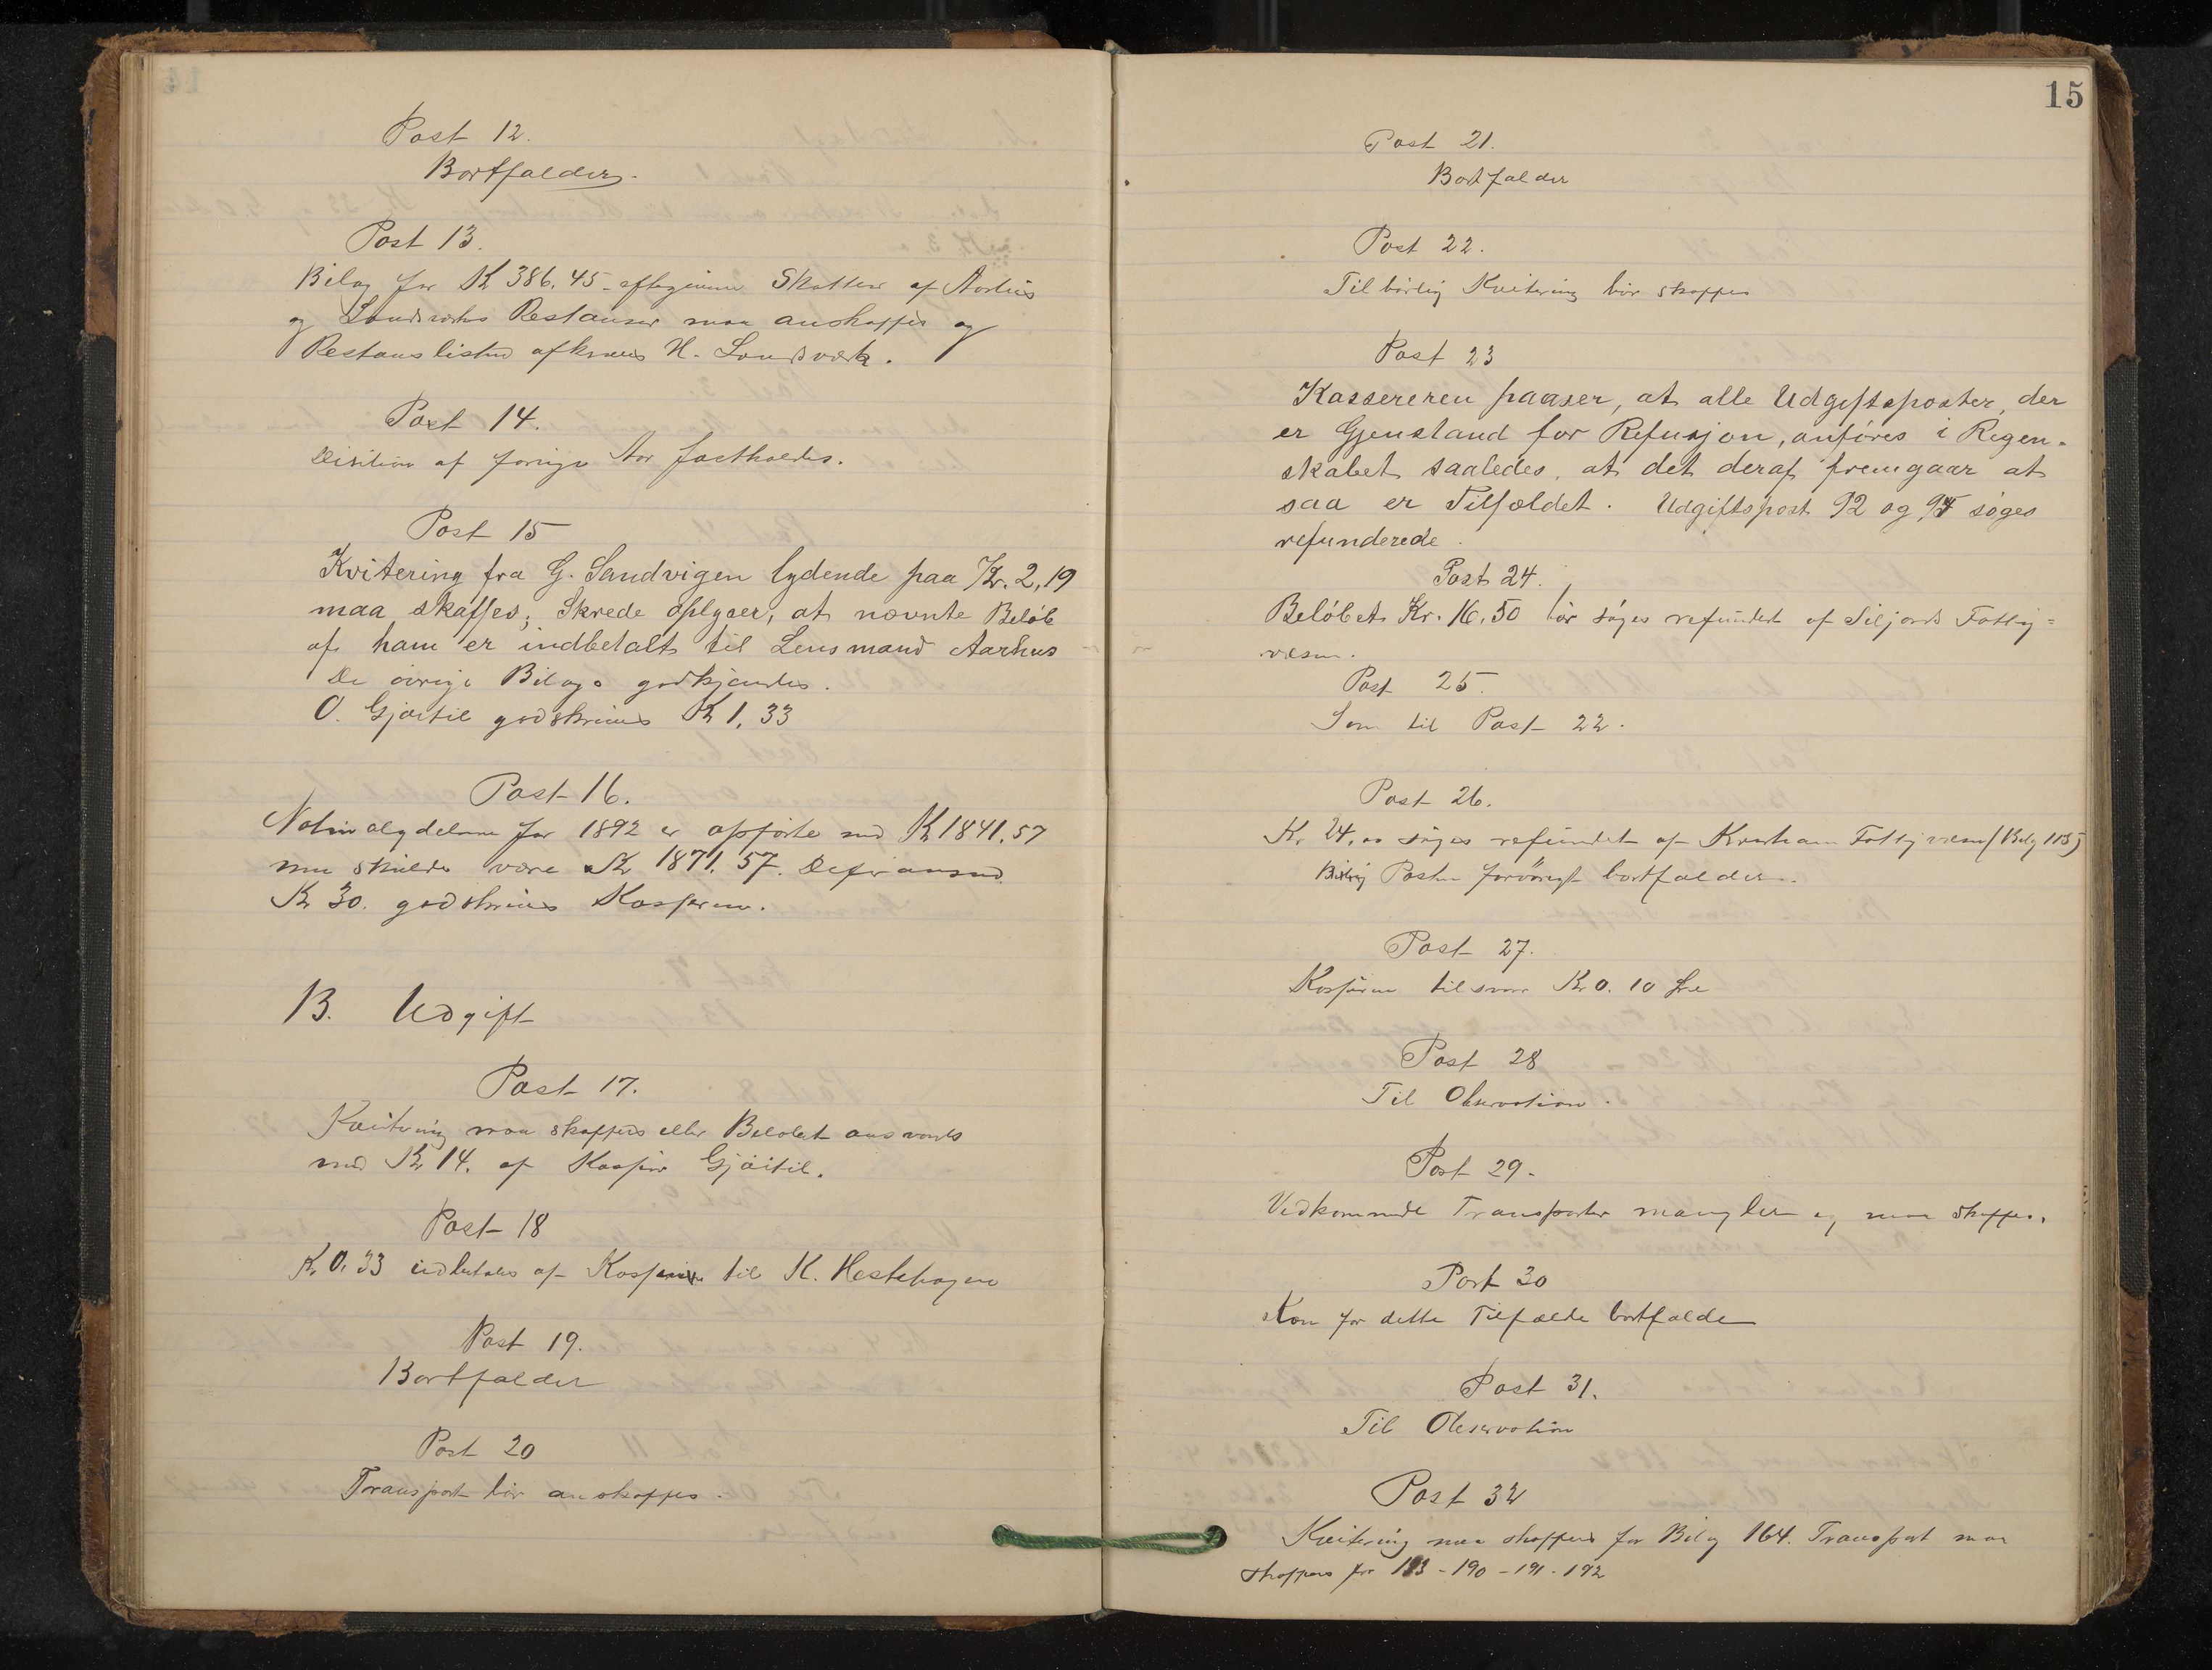 Post 12.
Bortfalder.
Post 13.
Bilag for Kr 386.45 eftergivne Skatter af Aarhus
og Landsverks Restanser maa anskaffes og
Restanslisten afkræves H. Landsverk.
Post 14.
Desition af forrige Aar fastholdes.
Post 15
Kvitering fra G. Sandvigen lydende paa Kr. 2,19
maa skaffes; Skrede oplyser, at nævnte Beløb
af ham er indbetalt til Lensmand Aarhus
De øvrige Bilage godkjendes.
O. Gjøitil godskrives Kr 1.33
Post 16.
for 1892 er opførte med Kr 1841.57
men skulde være Kr 1871.57. Differansen
Kr 30. godskrives Kasseren.
B. Udgift
Post 17.
Kvitering maa skaffes eller Beløbet ansvares
med Kr 14. af Kasser Gjøitil.
Post 18
Kr 0.33 indbetales af Kasseren til K. Hestehagen
Post 19.
Bortfalder
Post 20
Transport bør anskaffes.
15
Post 21.
Bortfalder
Post 22.
Tilbørlig Kvitering bør skaffes
Post 23
Kassereren paaser, at alle Udgiftsposter, der
er Gjenstand for Refusjon, anføres i Regen-
skabet saaledes, at det deraf fremgaar at
saa er Tilfældet. Udgiftspost 92 og 95 søges
refunderede.
Post 24.
Beløbet Kr. 16.50 bør søges refundert af Siljords Fattig=
væsen.
Post 25.
Som til Post 22.
Post 26.
Kr 24,00 søges refundet af Fattigvæsen (Bilag 115)
Posten forøvrigt bortfalder.
Post 27.
Kasseren tilsvarer Kr 0.10 Øre
Post 28
Til Observation.
Post 29.
Vedkommende Transporter mangler og maa skaffes.
Post 30
Kan for dette Tilfælde bortfalde
Post 31.
Til Observation
Post 32
Kvitering maa skaffes for Bilag 164. Transport maa
skaffes for 183 - 190 - 191 - 192